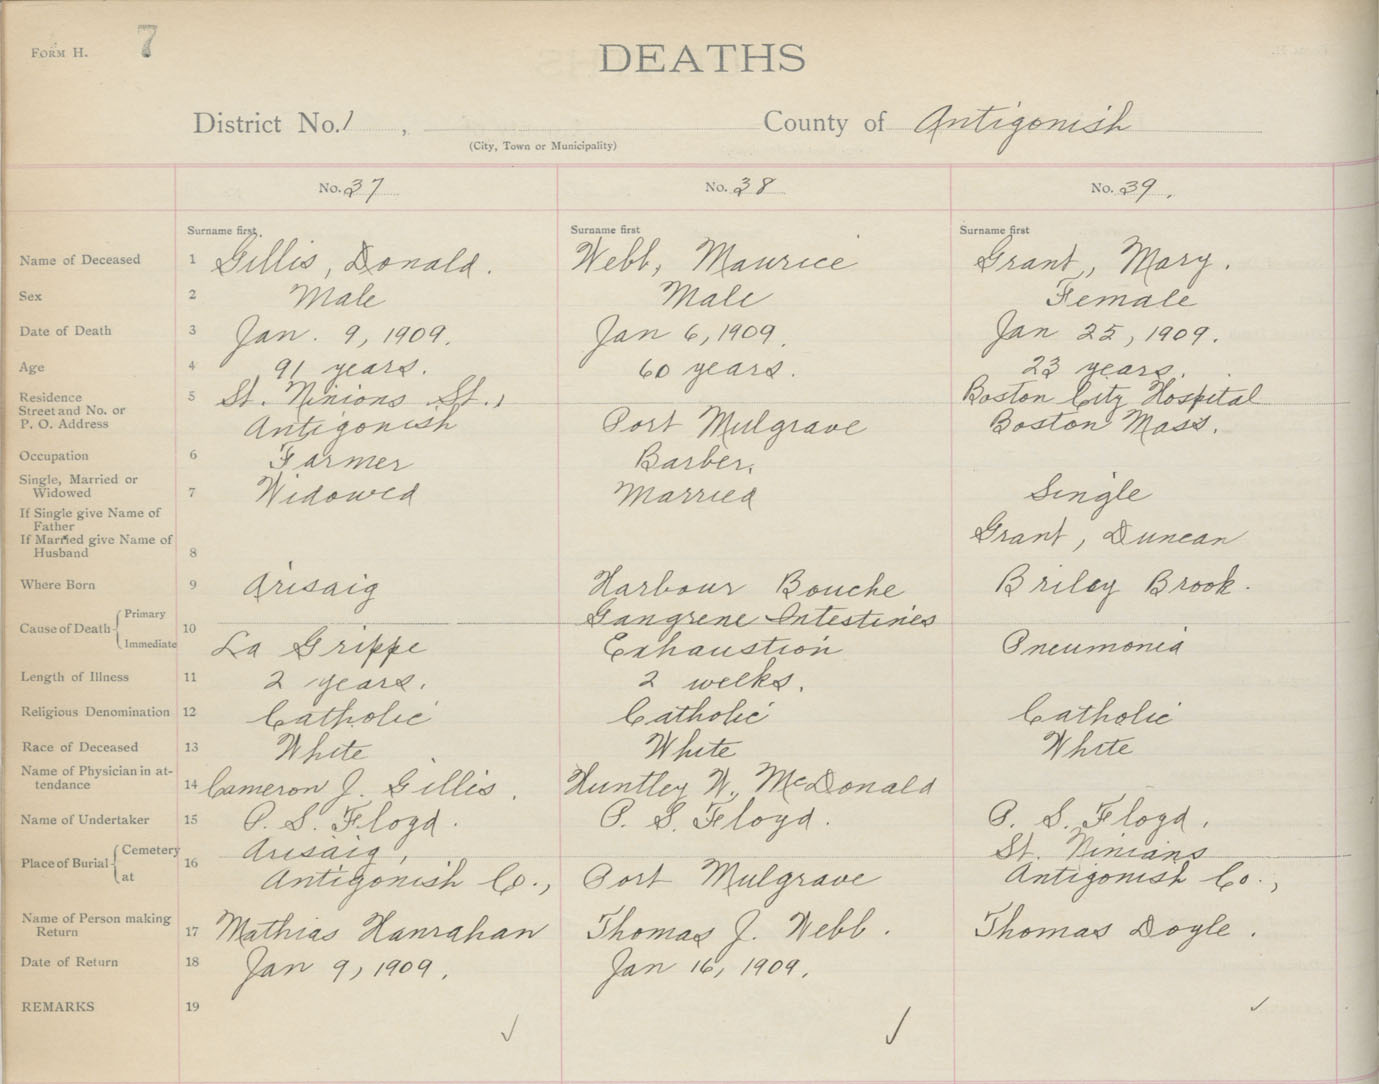 FORM H. 7
DEATHS
District No. 1 , County of Antigonish
(City, Town or Municipality)
No. 37 No. 38 No. 39.
Surname first. Surname first Surname first
Name of Deceased 1 Gillis, Donald. Webb, Maurice Grant, Mary.
Sex 2 Male Male Female
Date of Death 3 Jan. 9, 1909. Jan 6, 1909. Jan 25, 1909.
Age 4 91 years. 60 years. 23 years.
Residence 5 St. Ninions St., Boston City Hospital
Street and No. or
P. O. Address Antigonish Port Mulgrave Boston Mass.
Occupation 6 Farmer Barber.
Single, Married or
Widowed 7 Widowed Married Single
If Single give Name of
Father
If Married give Name of Grant, Duncan
Husband 8
Where Born 9 Arisaig Harbour Bouche Briley Brook.
Cause of Death Primary 10 Gangrene Intestines
Immediate La Grippe Exhaustion Pneumonia
Length of Illness 11 2 years. 2 weeks.
Religious Denomination 12 Catholic Catholic Catholic
Race of Deceased 13 White White White
Name of Physician in at-
tendance 14 Cameron J. Gillis. Huntley W. McDonald
Name of Undertaker 15 P. S. Floyd. P. S. Floyd. P. S. Floyd.
Place of Burial Cemetery 16 Arisaig, St. Ninians
at Antigonish Co., Port Mulgrave Antigonish Co.,
Name of Person making
Return 17 Mathias Hanrahan Thomas J. Webb. Thomas Doyle.
Date of Return 18 Jan 9, 1909. Jan 16, 1909.
REMARKS 19